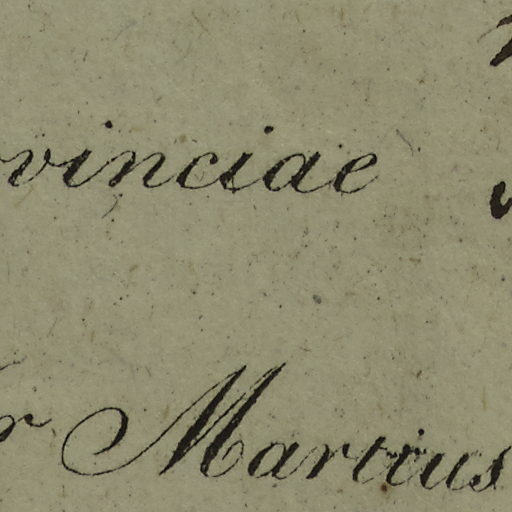 ovinciae
r Martius